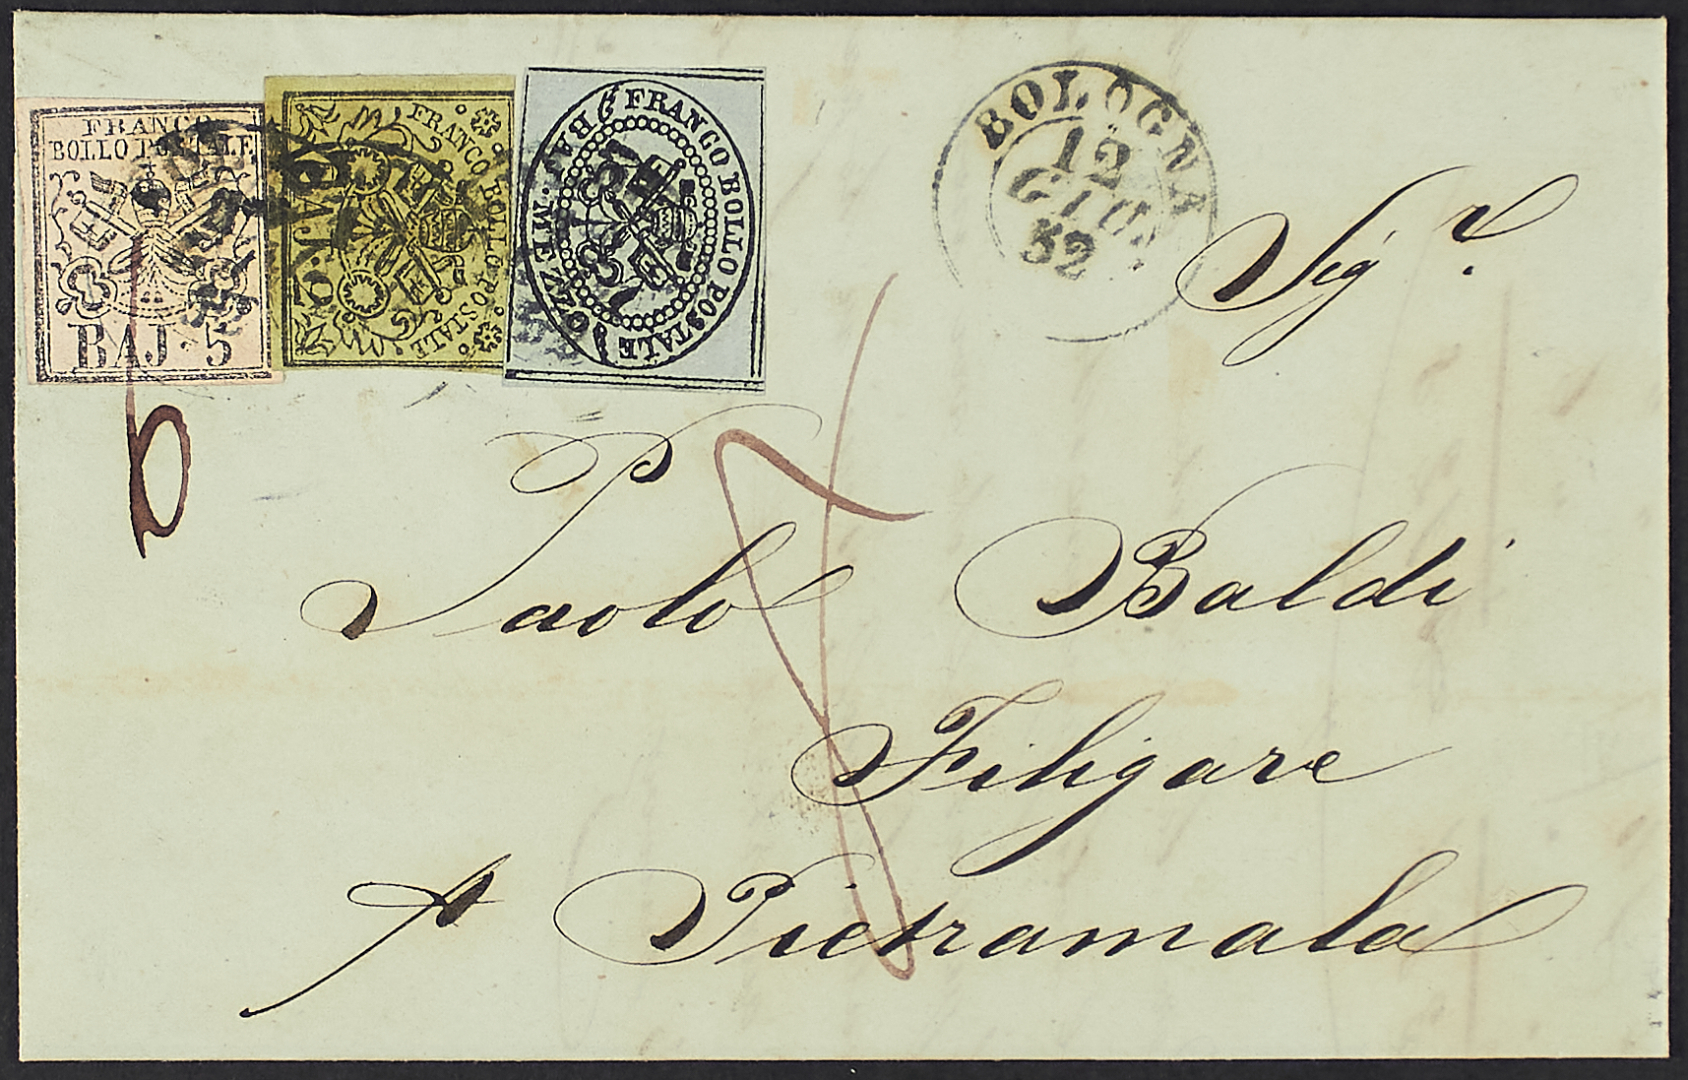 FRANCO
BOLLO POSTALE
BAJ · 5
FRANCO BOLLO POSTALE
BAJ. 2
FRANCO BOLLO POSTALE
MEZZO BAJ.
BOLOGNA
12
GIU
52
Sig.r
Paolo Baldi
Filigare
p Pietramala